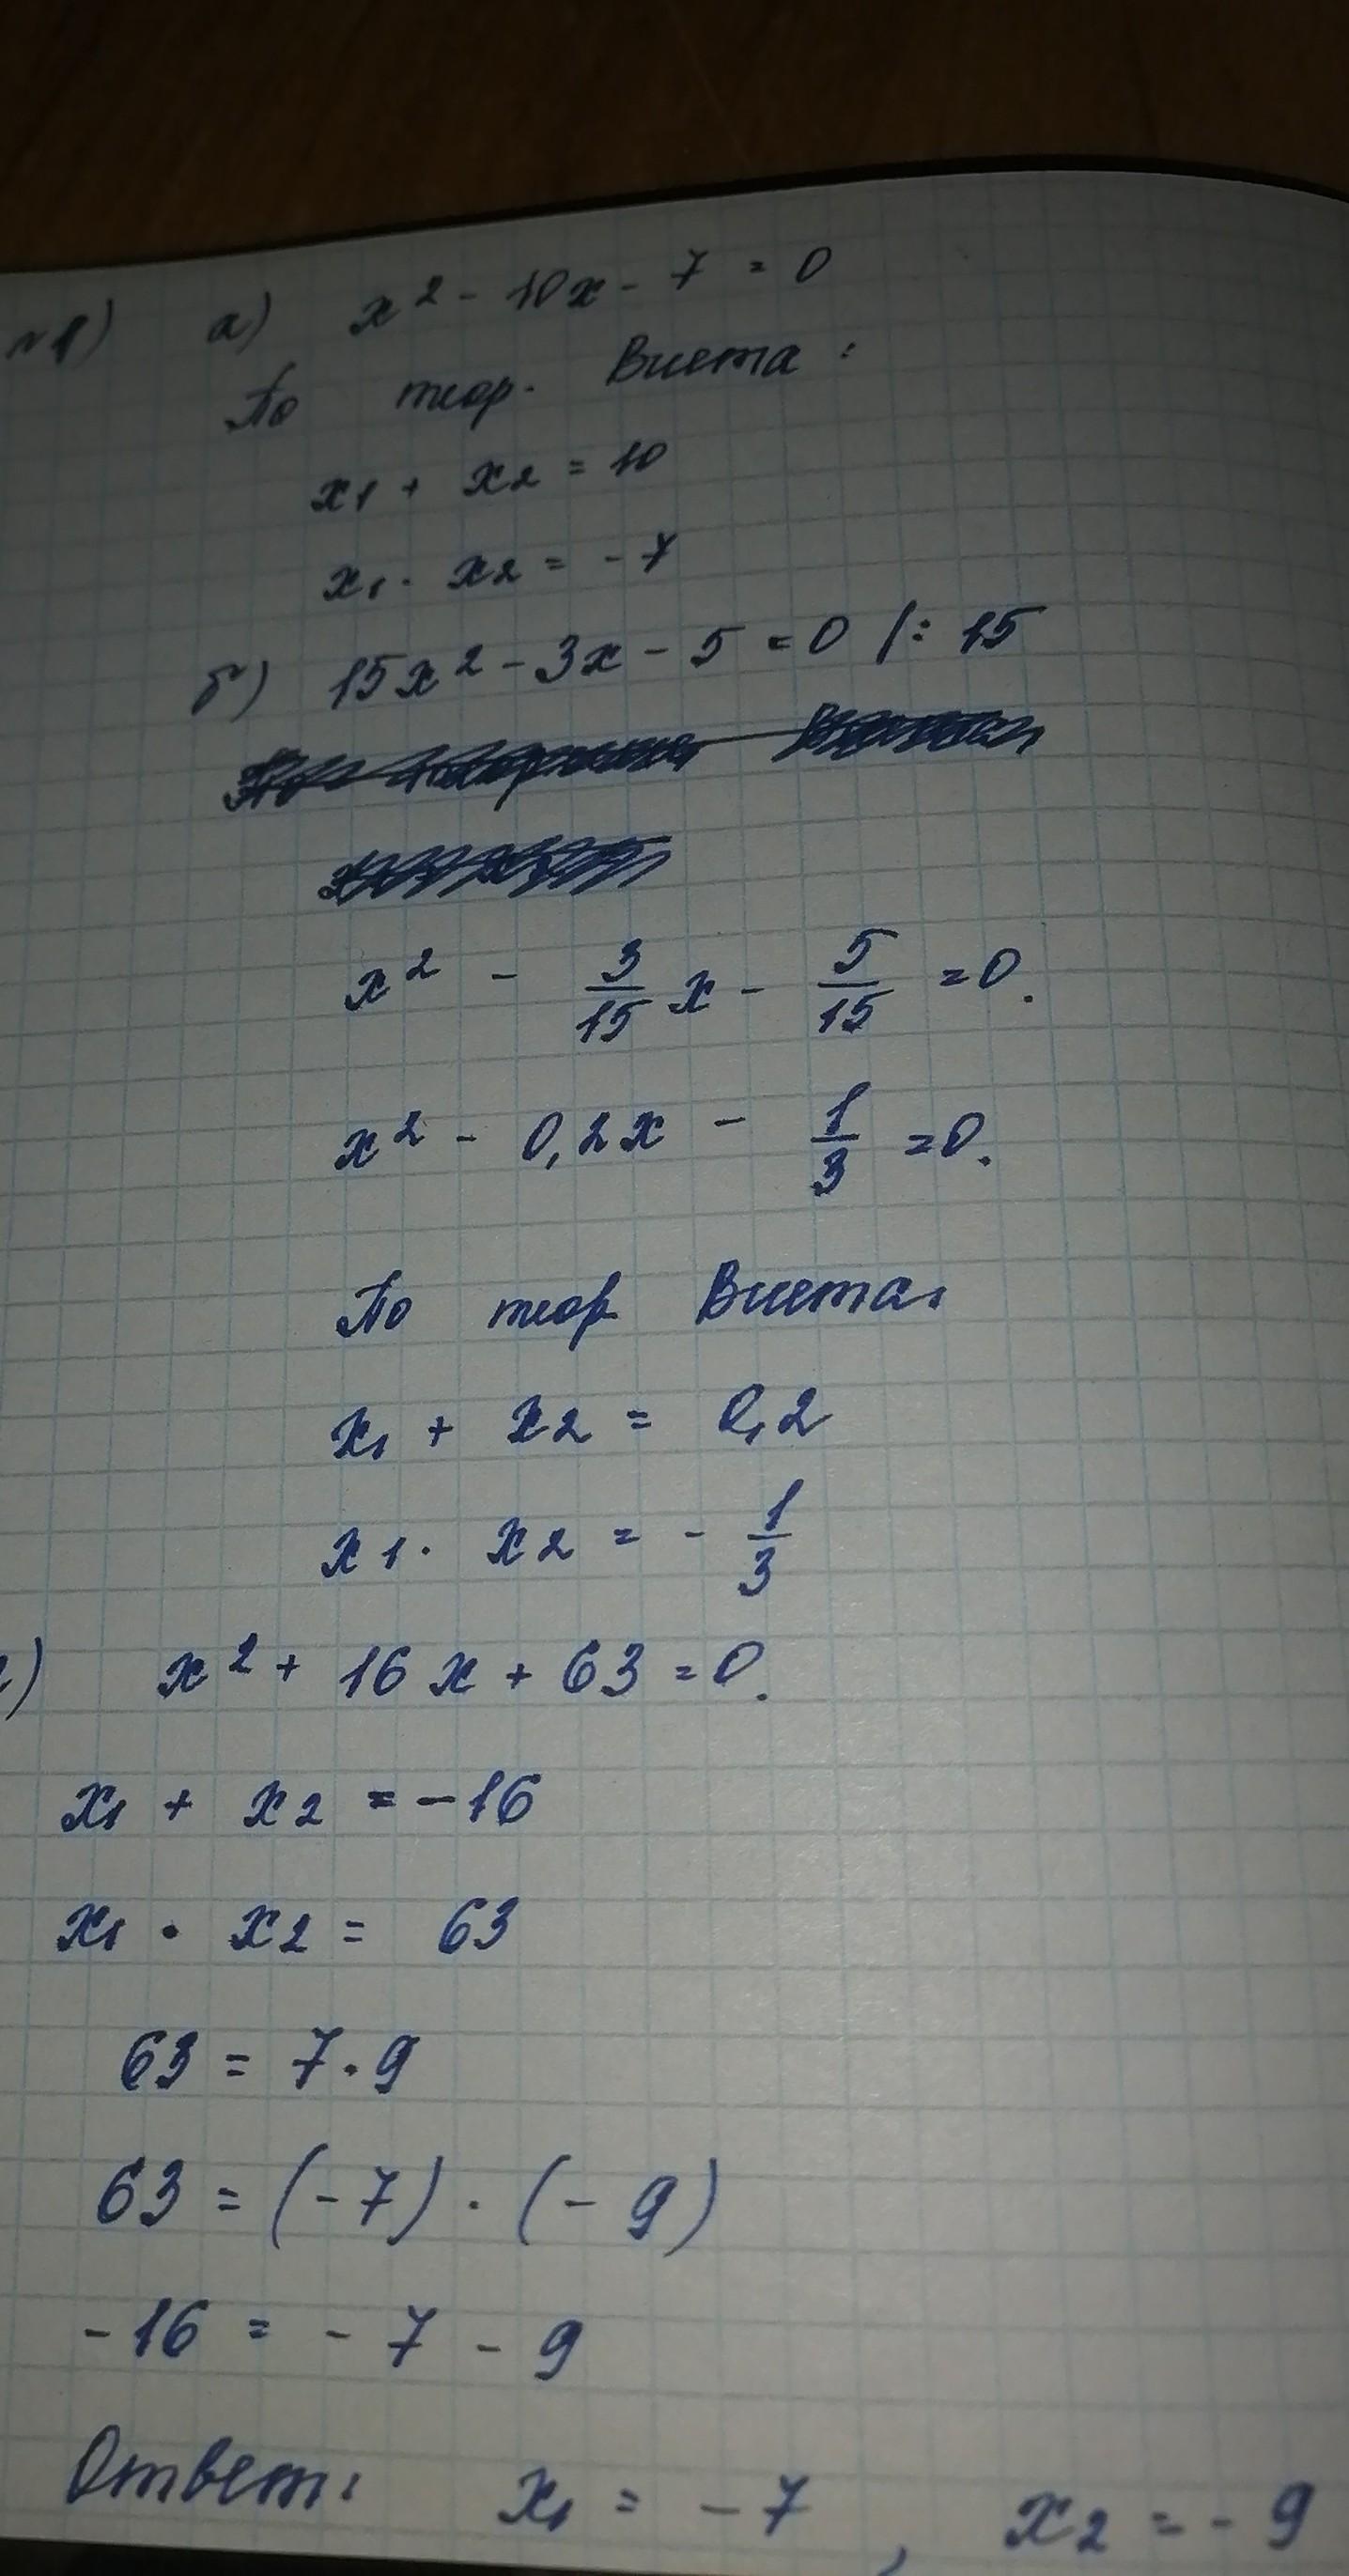 №1) а) x² - 10x - 7 = 0
По теор. Виета:
x₁ + x₂ = 10
x₁ · x₂ = -7
б) 15x² - 3x - 5 = 0 |: 15
x² - 3/15 x - 5/15 = 0.
x² - 0,2x - 1/3 = 0.
По теор Виета:
x₁ + x₂ = 0,2
x₁ · x₂ = - 1/3
) x² + 16x + 63 = 0.
x₁ + x₂ = -16
x₁ · x₂ = 63
63 = 7 · 9
63 = (-7) · (-9)
-16 = - 7 - 9
Ответ: x₁ = -7, x₂ = -9